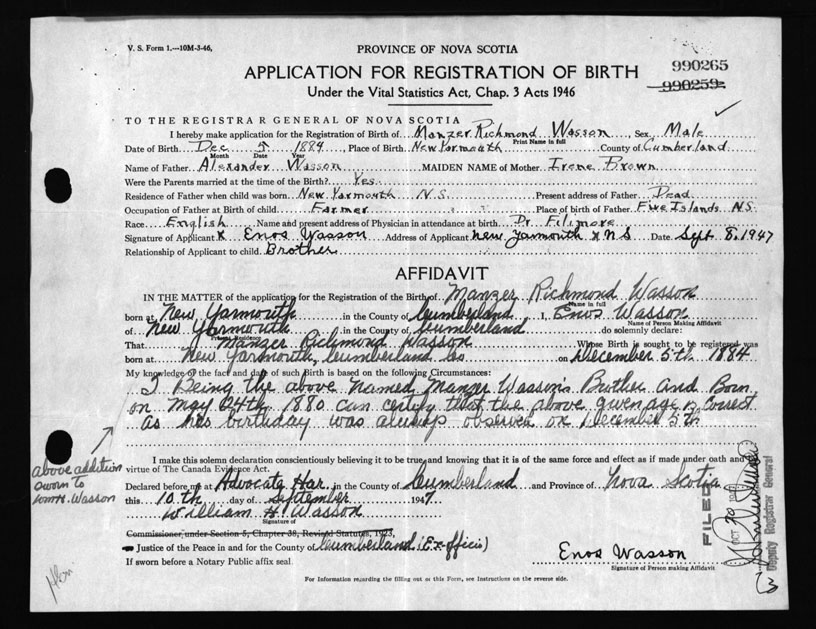 V. S. Form 1.—10M-3-46,
PROVINCE OF NOVA SCOTIA
990265
APPLICATION FOR REGISTRATION OF BIRTH
990259
Under the Vital Statistics Act, Chap. 3 Acts 1946
TO THE REGISTRAR GENERAL OF NOVA SCOTIA
I hereby make application for the Registration of Birth of Manzer Richmond Wasson, Sex Male
Print Name in full
Date of Birth Dec 5 1884, Place of Birth New Yarmouth County of Cumberland
Month Date Year
Name of Father Alexander Wasson MAIDEN NAME of Mother Irene Brown
Were the Parents married at the time of the Birth? Yes
Residence of Father when child was born New Yarmouth N.S. Present address of Father Dead
Occupation of Father at Birth of child Farmer Place of birth of Father Five Islands N.S.
Race English Name and present address of Physician in attendance at birth Dr Fillmore
Signature of Applicant x Enos Wasson Address of Applicant New Yarmouth x NS Date Sept 8, 1947
Relationship of Applicant to child Brother
AFFIDAVIT
IN THE MATTER of the application for the Registration of the Birth of Manzer Richmond Wasson
Name in full
born at New Yarmouth in the County of Cumberland I, Enos Wasson
Name of Person Making Affidavit
of New Yarmouth in the County of Cumberland do solemnly declare:
That Manzer Richmond Wasson Whose Birth is sought to be registered was
born at New Yarmouth, Cumberland Co on December 5th 1884
My knowledge of the fact and date of such Birth is based on the following Circumstances:
I Being the above named Manzer Wasson's Brother and Born
on May 24th 1880 can certify that the above given age is correct
as his birthday was always observed on December 5th
above addition
sworn to
Wm H. Wasson
I make this solemn declaration conscientiously believing it to be true and knowing that it is of the same force and effect as if made under oath and by
virtue of The Canada Evidence Act.
Declared before me at Advocate Har. in the County of Cumberland and Province of Nova Scotia
this 10th day of September 1947
William H Wasson
Signature of
Commissioner under Section 5, Chapter 38, Revised Statutes, 1923,
Justice of the Peace in and for the County of Cumberland (Ex-officio)
Enos Wasson
If sworn before a Notary Public affix seal
Signature of Person making Affidavit
For Information regarding the filling out of this Form, see Instructions on the reverse side.
FILED
OCT 30
Deputy Registrar General